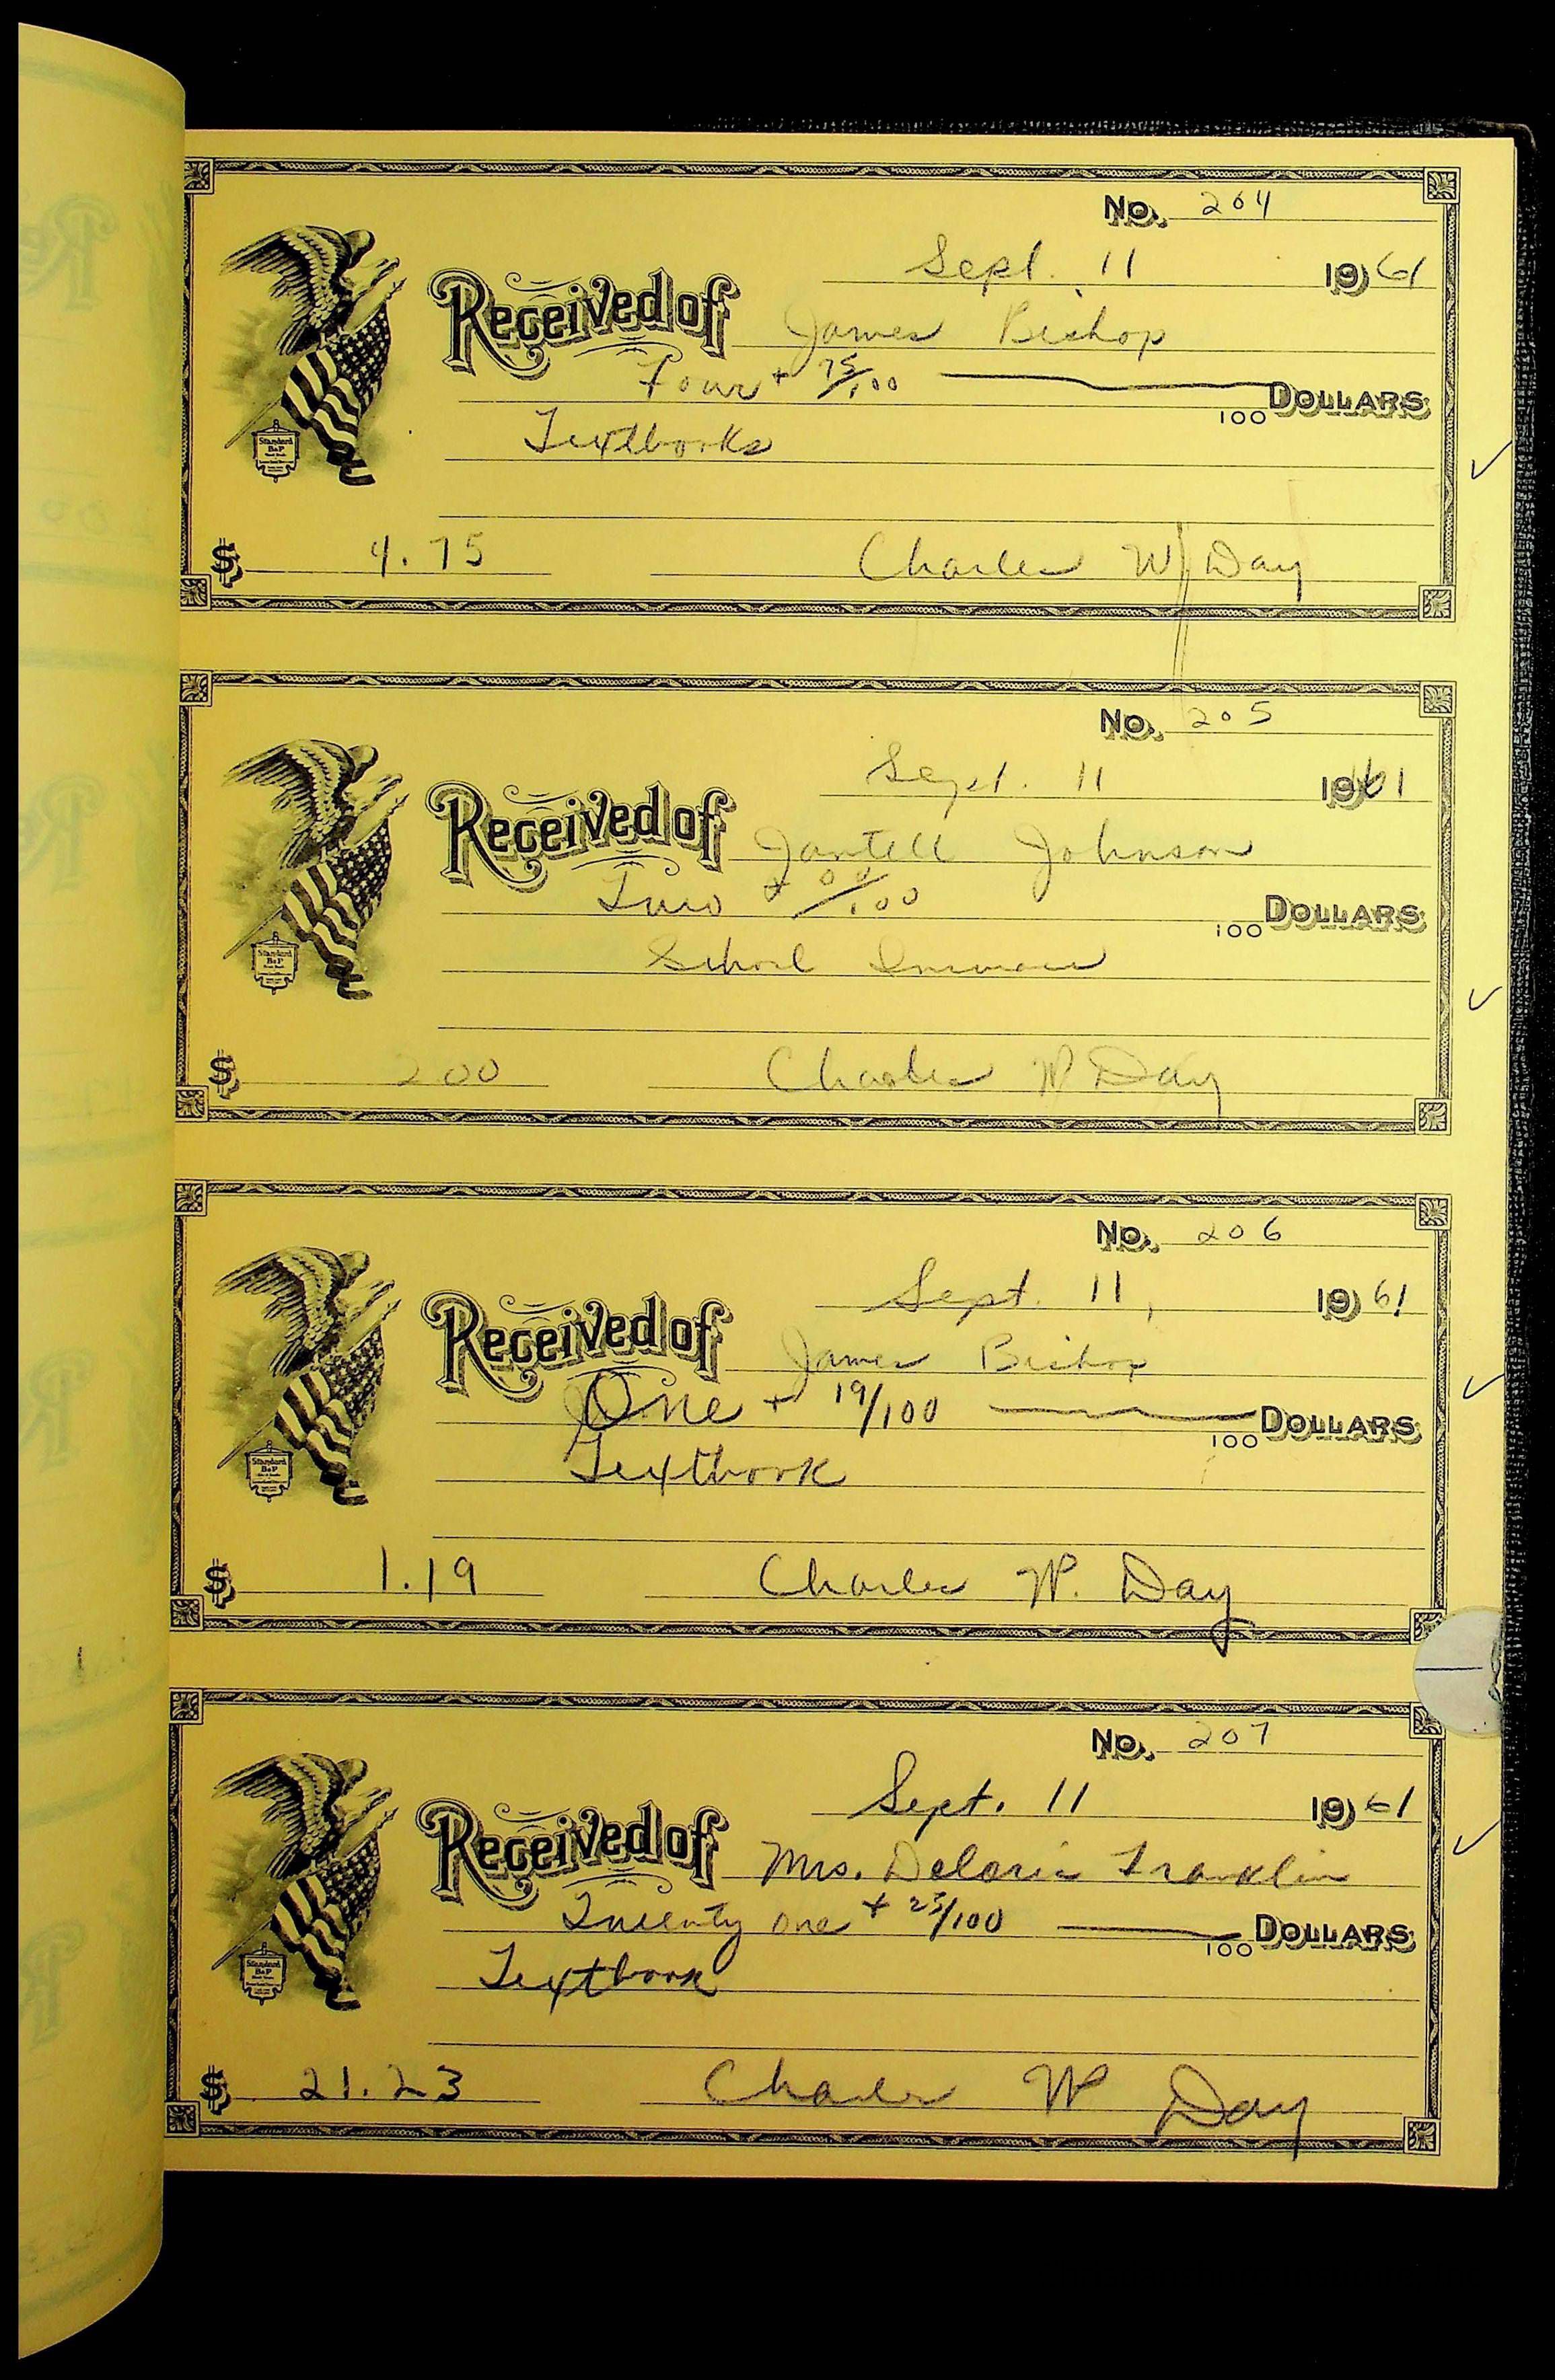 No. 204
Sept. 11 1961
Received of James Bishop
Four + 75/100 100 DOLLARS
Textbooks
$ 4.75 Charles W. Day
No. 205
Sept. 11 1961
Received of Johnson
Two + 00/100 100 DOLLARS
School Insurance
$ 2 00 Charles W. Day
No. 206
Sept. 11, 1961
Received of James Bishop
One + 19/100 100 DOLLARS
Textbook
$ 1.19 Charles W. Day
No. 207
Sept. 11 1961
Received of Mrs. Deloris Franklin
Twenty one + 23/100 100 DOLLARS
Textbook
$ 21.23 Charles W Day